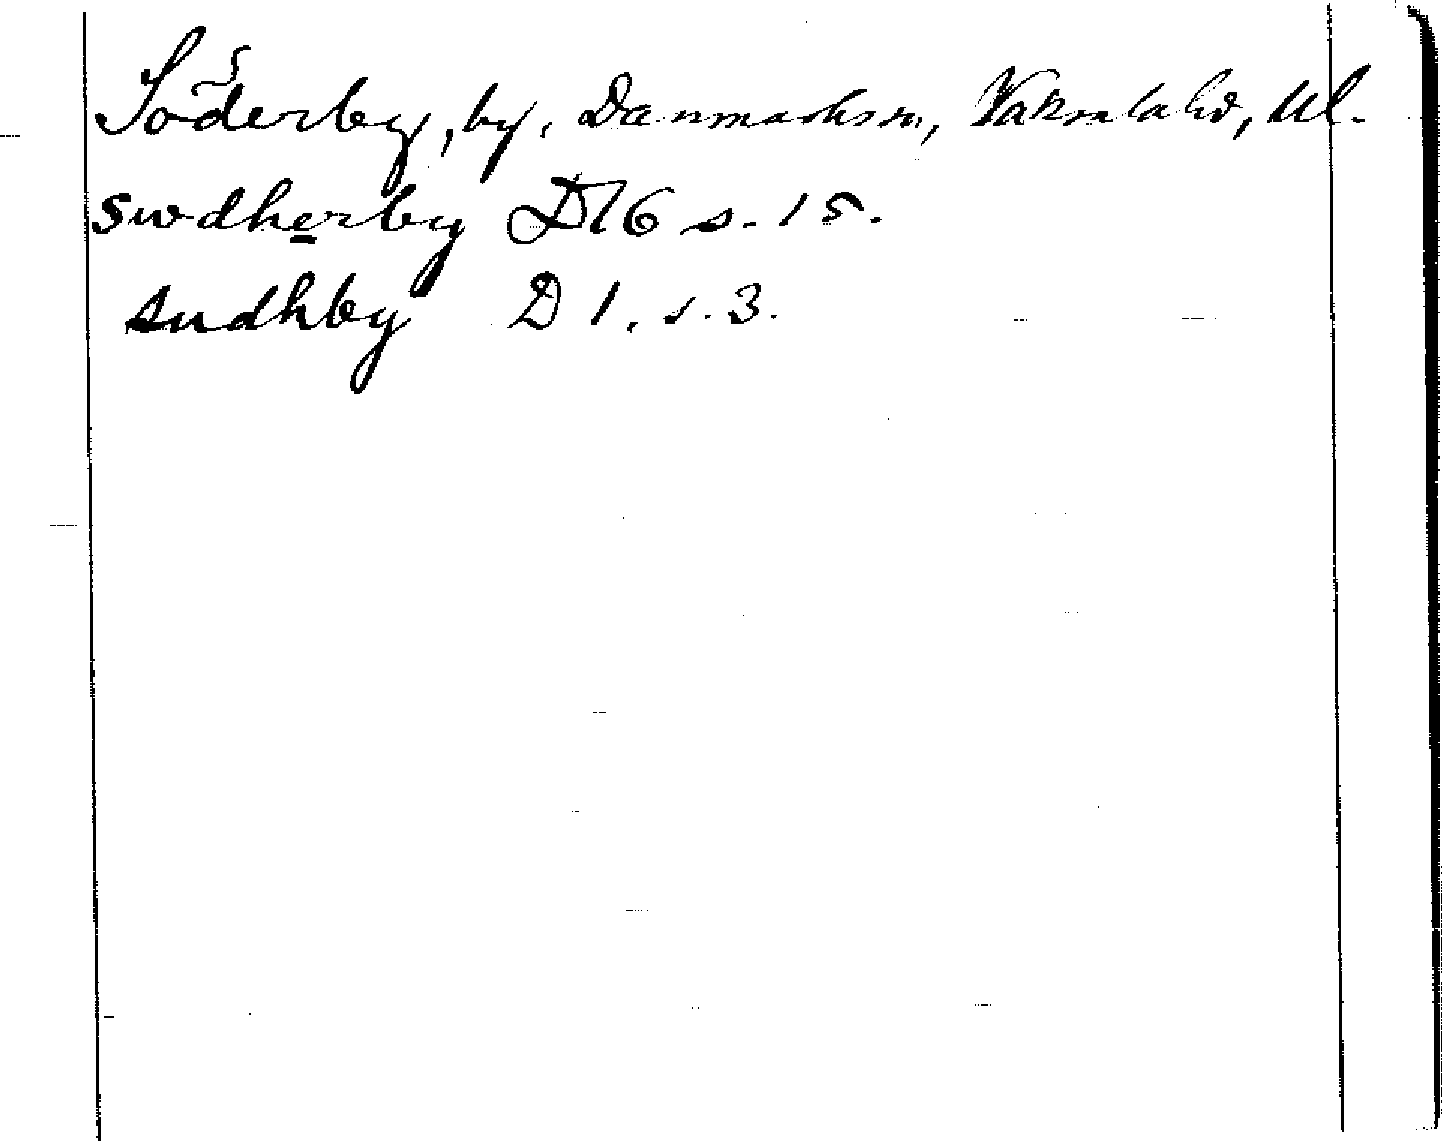 Söderby, by, Danmarks sn, Vaksala hd, Ul.
swdherby D 16 s. 15.
sudhby D 1. s. 3.